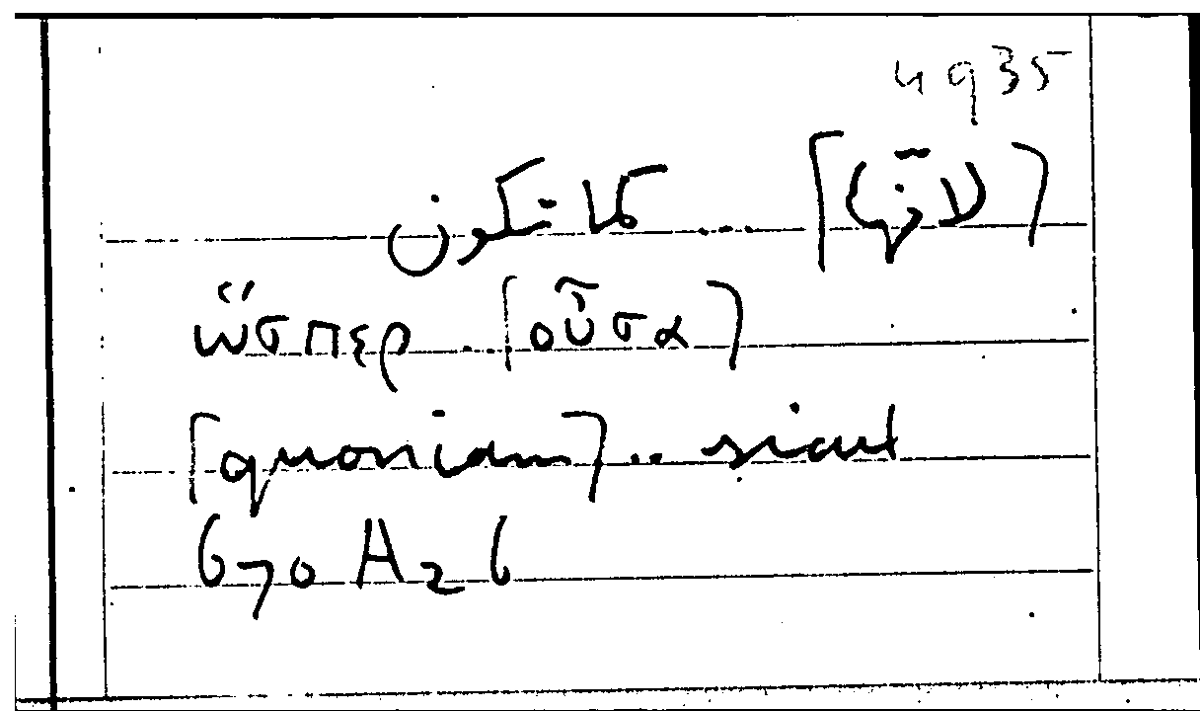 4935
[لأنّها] ... كما تكون
ὥσπερ ... [οὖσα]
[quoniam] .. sicut
670 A 26